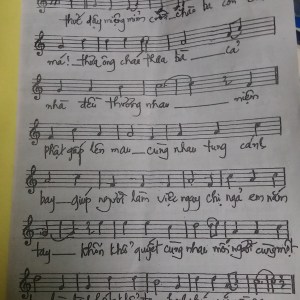 thức dậy miệng mỉm cười chào ba con
má! thưa ông cháu thưa bà cả
nhà đều thương nhau niệm
phật gấp lên mau cùng nhau tung cánh
bay giúp người làm việc ngay chị ngã em nâng
tay khẩn khả quyết cùng nhau mỗi người cùng một